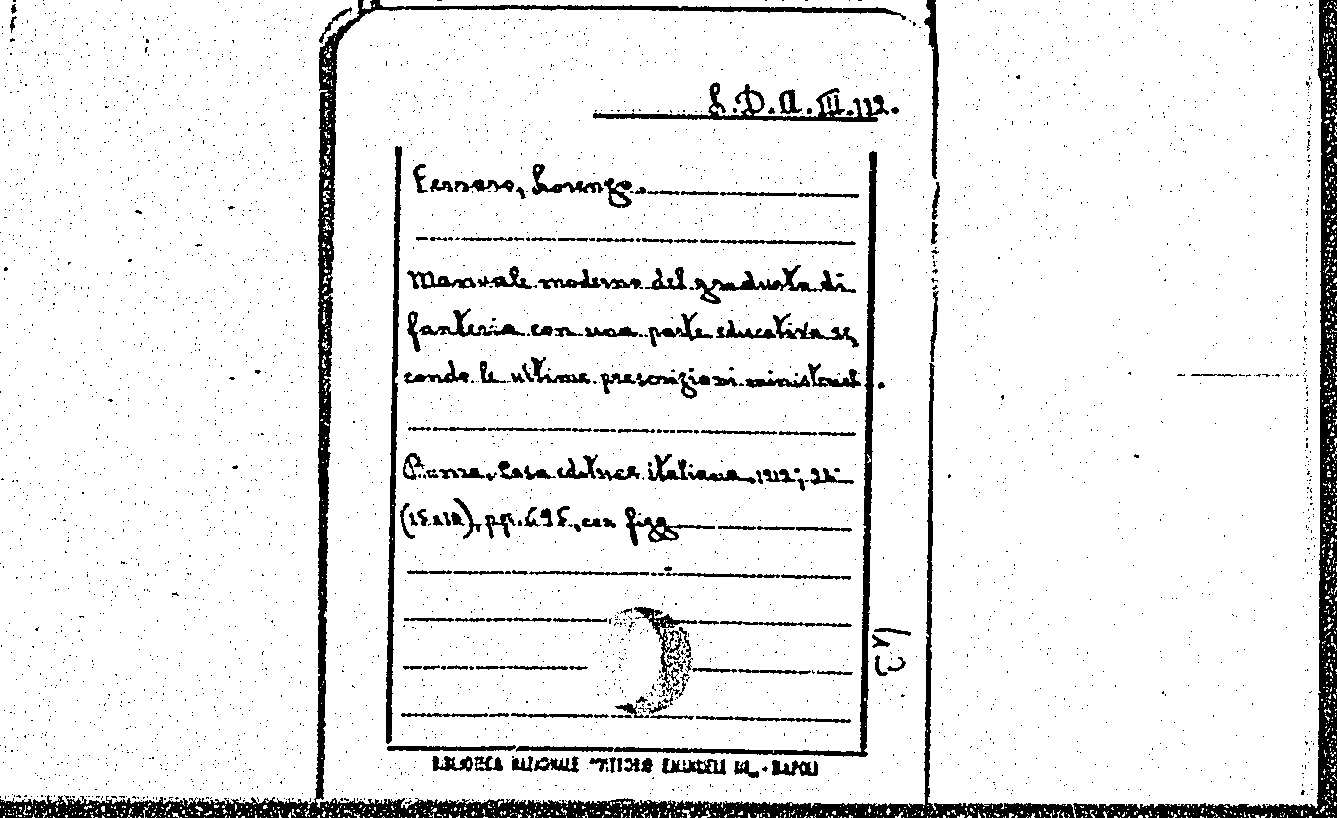 L.D.II.III.112.
Ferraro, Lorenzo.
Manuale moderno del graduato di
fanteria con una parte educativa se
condo le ultime prescrizioni ministeriali.
Roma, Casa editrice italiana, 1912; 24°
(15x10), pp. 695, con figg
BIBLIOTECA NAZIONALE "VITTORIO EMANUELE III" - NAPOLI